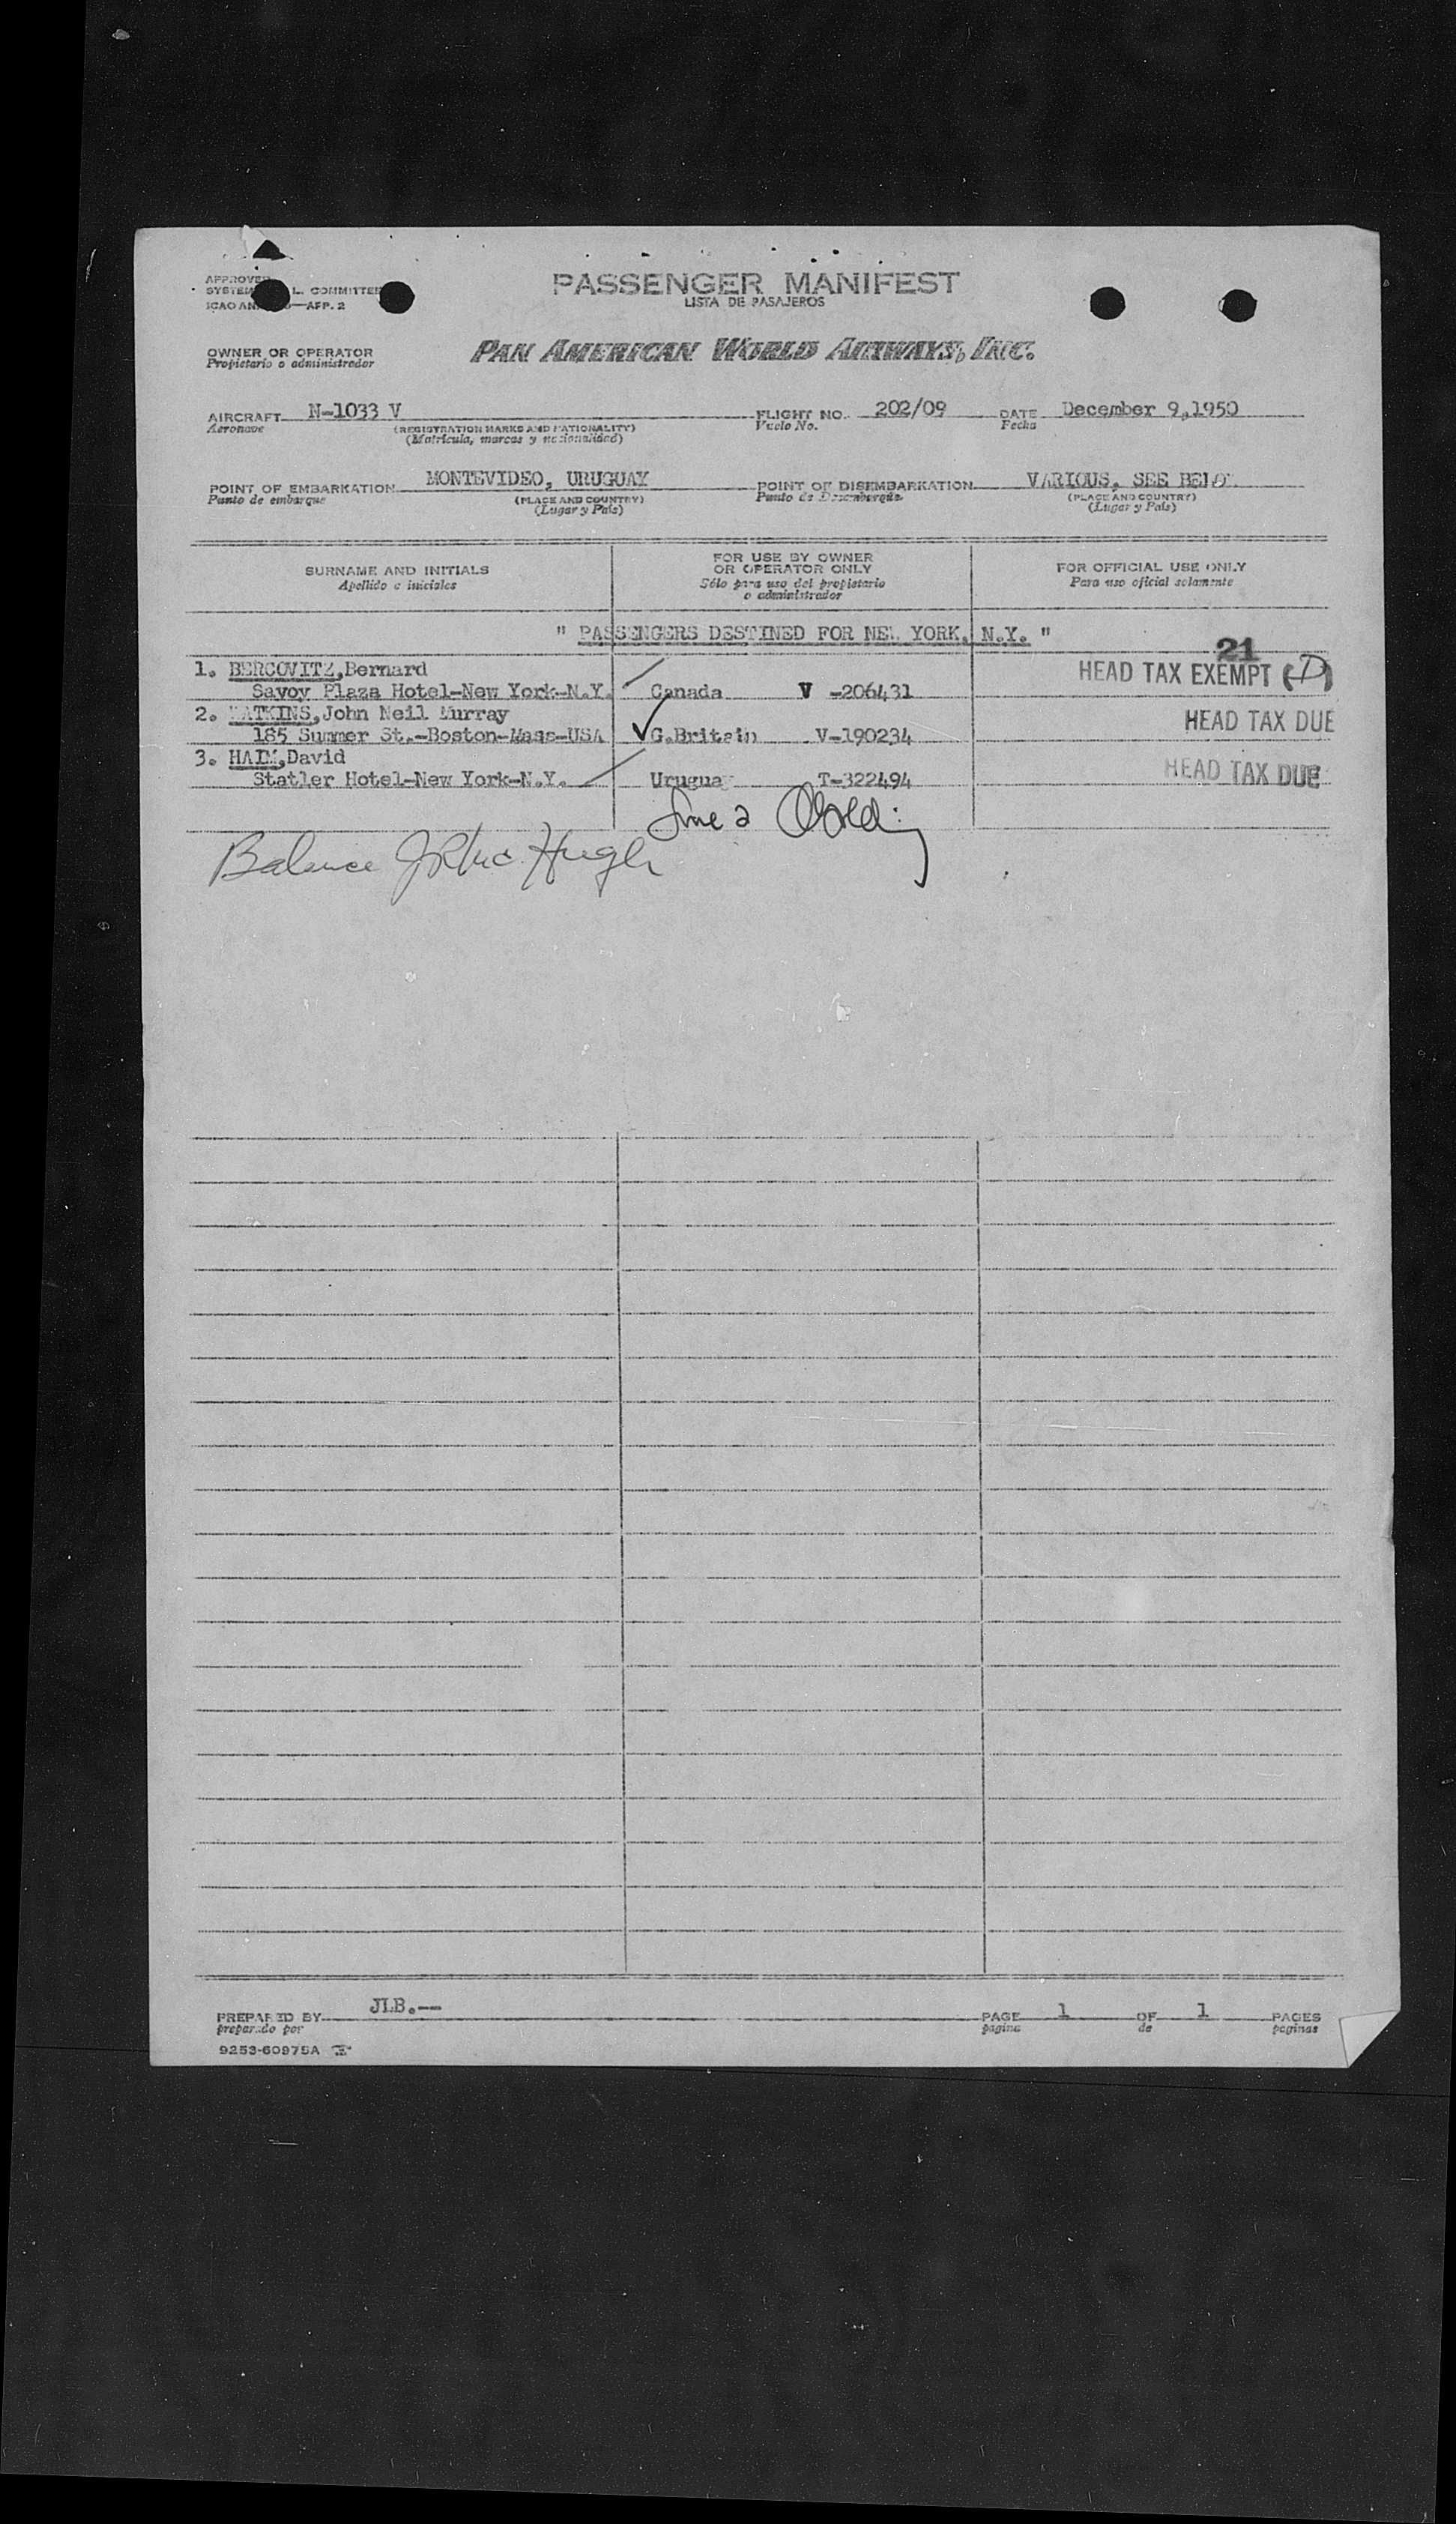 APPROVED
SYSTEM L. COMMITTEE
ICAO AN —APP. 2
PASSENGER MANIFEST
LISTA DE PASAJEROS
OWNER OR OPERATOR
Propietario o administrador
PAN AMERICAN WORLD AIRWAYS, INC.
AIRCRAFT N-1033 V FLIGHT NO. 202/09 DATE December 9,1950
Aeronave (REGISTRATION MARKS AND NATIONALITY) Vuelo No. Fecha
(Matrícula, marcas y nacionalidad)
POINT OF EMBARKATION MONTEVIDEO, URUGUAY POINT OF DISEMBARKATION VARIOUS, SEE BELOW
Punto de embarque (PLACE AND COUNTRY) Punto de Desembarque (PLACE AND COUNTRY)
(Lugar y País) (Lugar y País)
SURNAME AND INITIALS
Apellido e iniciales
FOR USE BY OWNER
OR OPERATOR ONLY
Sólo para uso del propietario
o administrador
FOR OFFICIAL USE ONLY
Para uso oficial solamente
" PASSENGERS DESTINED FOR NEW YORK, N.Y. "
21
1. BERCOVITZ,Bernard HEAD TAX EXEMPT (D)
Savoy Plaza Hotel-New York-N.Y. Canada V -206431
2. WATKINS,John Neil Murray HEAD TAX DUE
185 Summer St.-Boston-Mass-USA G.Britain V-190234
3. HAIM,David HEAD TAX DUE
Statler Hotel-New York-N.Y. Uruguay T-322494
Balance Hugh
PREPARED BY JLB.-- PAGE 1 OF 1 PAGES
preparado por pagina de paginas
9253-60975A